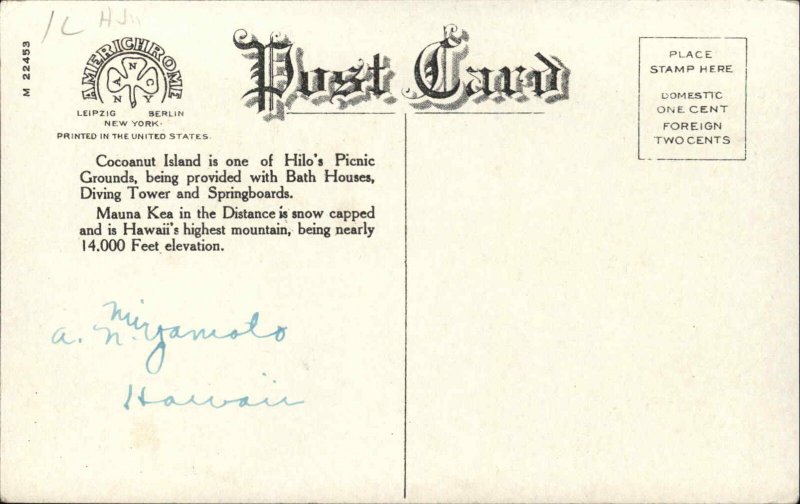 M 22453
AMERICHROME
A N C N Y
LEIPZIG BERLIN
NEW YORK.
PRINTED IN THE UNITED STATES.
Post Card
PLACE
STAMP HERE
DOMESTIC
ONE CENT
FOREIGN
TWO CENTS
Cocoanut Island is one of Hilo's Picnic
Grounds, being provided with Bath Houses,
Diving Tower and Springboards.
Mauna Kea in the Distance is snow capped
and is Hawaii's highest mountain, being nearly
14,000 Feet elevation.
a. N. Miyamoto
Hawaii